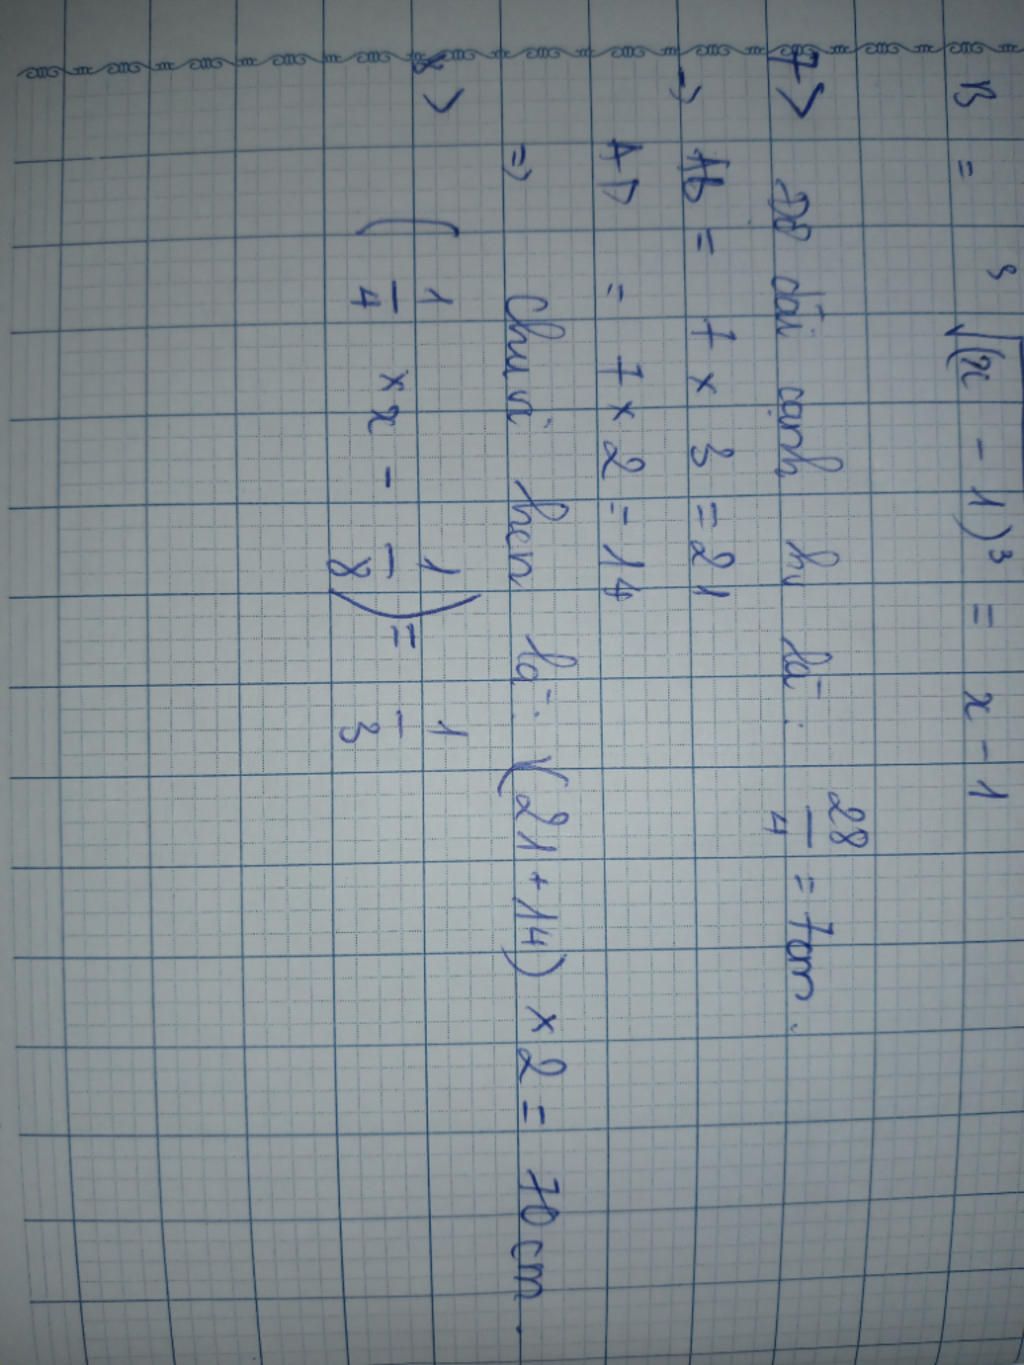 B = ³√(x - 1)³ = x - 1
7> Độ dài cạnh hv là : 28/4 = 7cm.
=> AB = 7 x 3 = 21
AD = 7 x 2 = 14
=> Chu vi hcn là : (21 + 14) x 2 = 70 cm .
8> (1/4 x x - 1/8) = 1/3